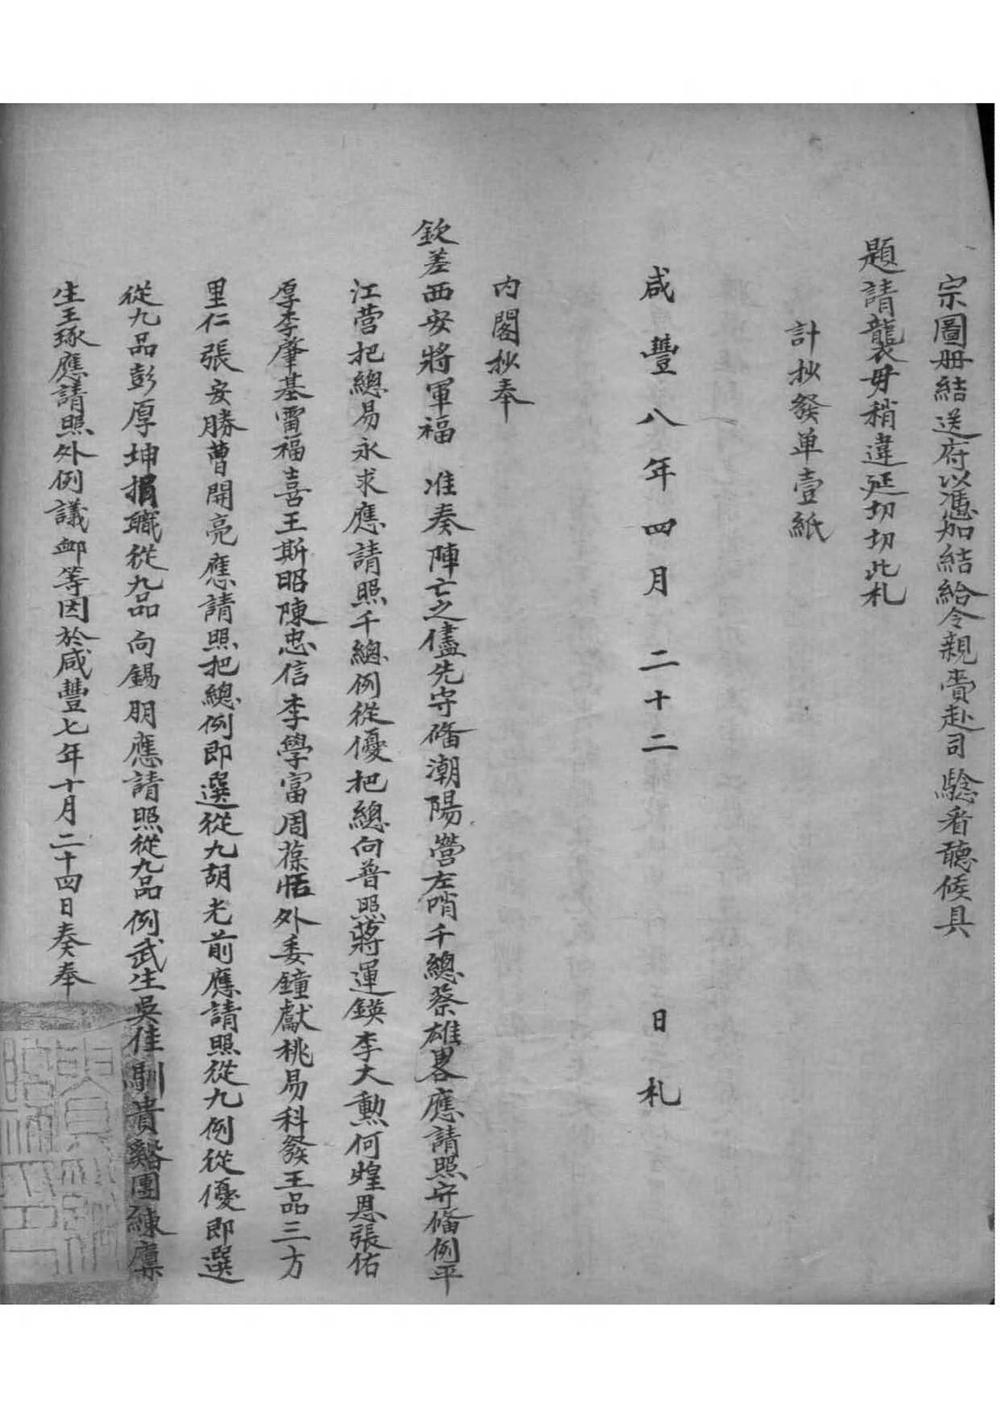 宗圖册結送府以憑加結給令親賫赴司驗看聽候具
題請襲毋稍違延切切此札
計抄發单壹紙
咸豐八年四月二十二日札
内閣抄奉
欽差西安將軍福 准奏陣亡之儘先守俻潮陽營左哨千總蔡雄畧應請照守俻例平
江营把總易永求應請照千總例從優把總向普照蔣運鍈李大勳何煌恩張佑
厚李肇基雷福喜王斯昭陳忠信李學富周葆恬外委鐘獻桃易科發王品三方
里仁張安勝曹開亮應請照把總例即選從九胡光前應請照從九例從優即選
從九品彭厚坤捐職從九品向錫朋應請照從九品例武生吳佳馴貴谿團練廪
生王琢應請照外例議卹等因於咸豐七年十月二十四日奏奉